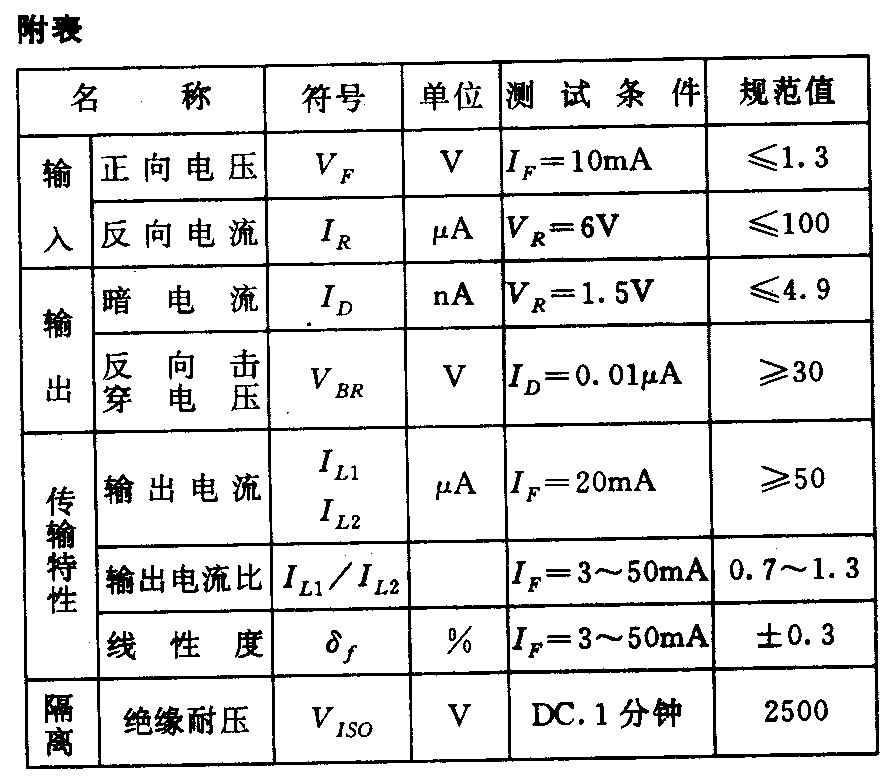 附表
名 称 符号 单位 测试条件 规范值
输入 正向电压 V_F V I_F=10mA ≤1.3
反向电流 I_R μA V_R=6V ≤100
输出 暗电流 I_D nA V_R=1.5V ≤4.9
反向击穿电压 V_BR V I_D=0.01μA ≥30
传输特性 输出电流 I_L1 I_L2 μA I_F=20mA ≥50
输出电流比 I_L1/I_L2 I_F=3~50mA 0.7~1.3
线性度 δ_f % I_F=3~50mA ±0.3
隔离 绝缘耐压 V_ISO V DC.1分钟 2500